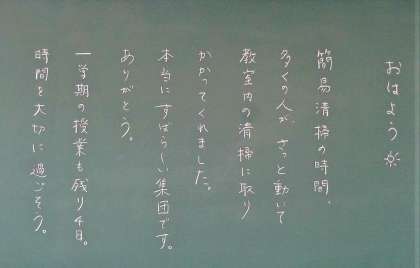 おはよう☀
簡易清掃の時間、
多くの人が、さっと動いて
教室内の清掃に取り
かかってくれました。
本当にすばらしい集団です。
ありがとう。
一学期の授業も残り4日。
時間を大切に過ごそう。